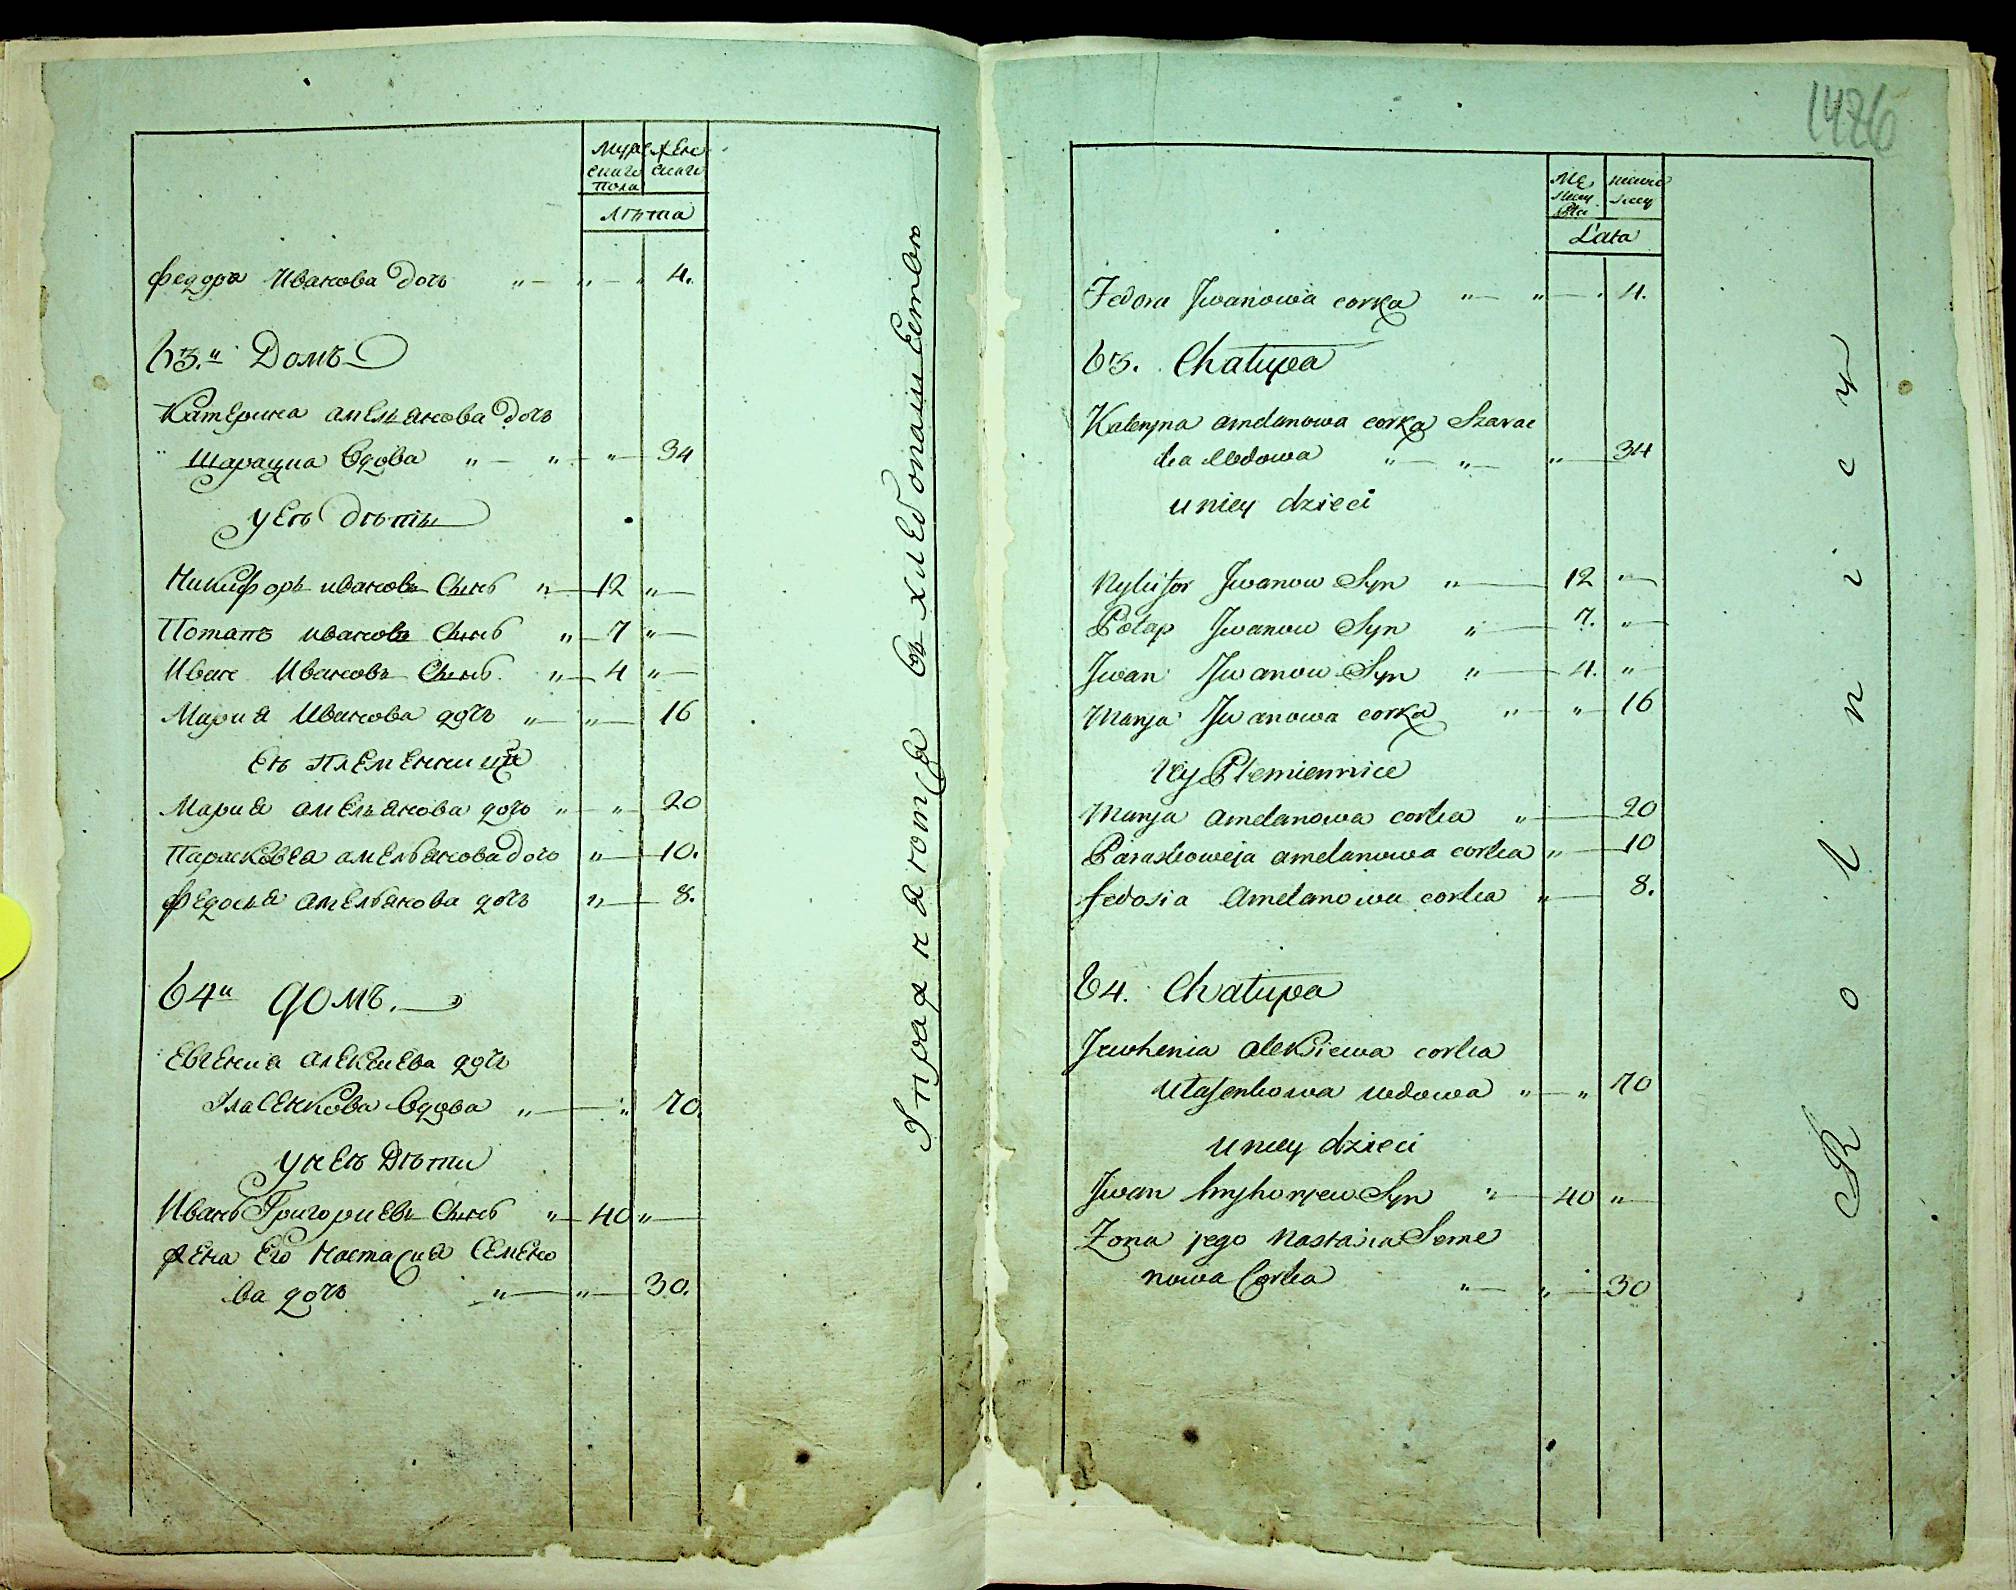 Муже Жен
скаго скаго
пола
Лѣта
Федора Иванова дочь 4.
63.й Домъ
Катерина Амельянова дочь
Шарацка вдова 34
у еѣ дѣти
Никифоръ Ивановъ Сынъ 12
Потапъ Ивановъ Сынъ 7
Иванъ Ивановъ Сынъ 4
Мария Иванова дочь 16
еѣ племенници
Мария Амельянова дочь 20
Парасковея Амельянова дочь 10.
Федосья Амельянова дочь 8.
64й домъ.
Евгения Алексиева дочь
Власенкова вдова 70.
у неѣ дѣти
Иванъ Григориевъ Сынъ 40
Жена Его Настасия Семено
ва дочь 30.
Упражняются въ хлебопашестве
1426
Lata
Fedora Jwanowa corka 4.
63. Chałupa
Kateryna Amelanowa corka Szarac
ka Wdowa 34
u niey dzieci
Nykifor Jwanow Syn 12
Potap Jwanow Syn 7.
Jwan Jwanow Syn 4.
Marya Jwanowa corka 16
Jey Plemiennice
Marya Amelanowa corka 20
Paraskoweja Amelanowa corka 10
Fedosia Amelanowa corka 8.
64. Chałupa
Jewhenia Aleksiewa corka
Własenkowa wdowa 70
u niey dzieci
Jwan Hryhoryew Syn 40
Zona jego Nastasia Seme
nowa Corka 30
Rolnicy